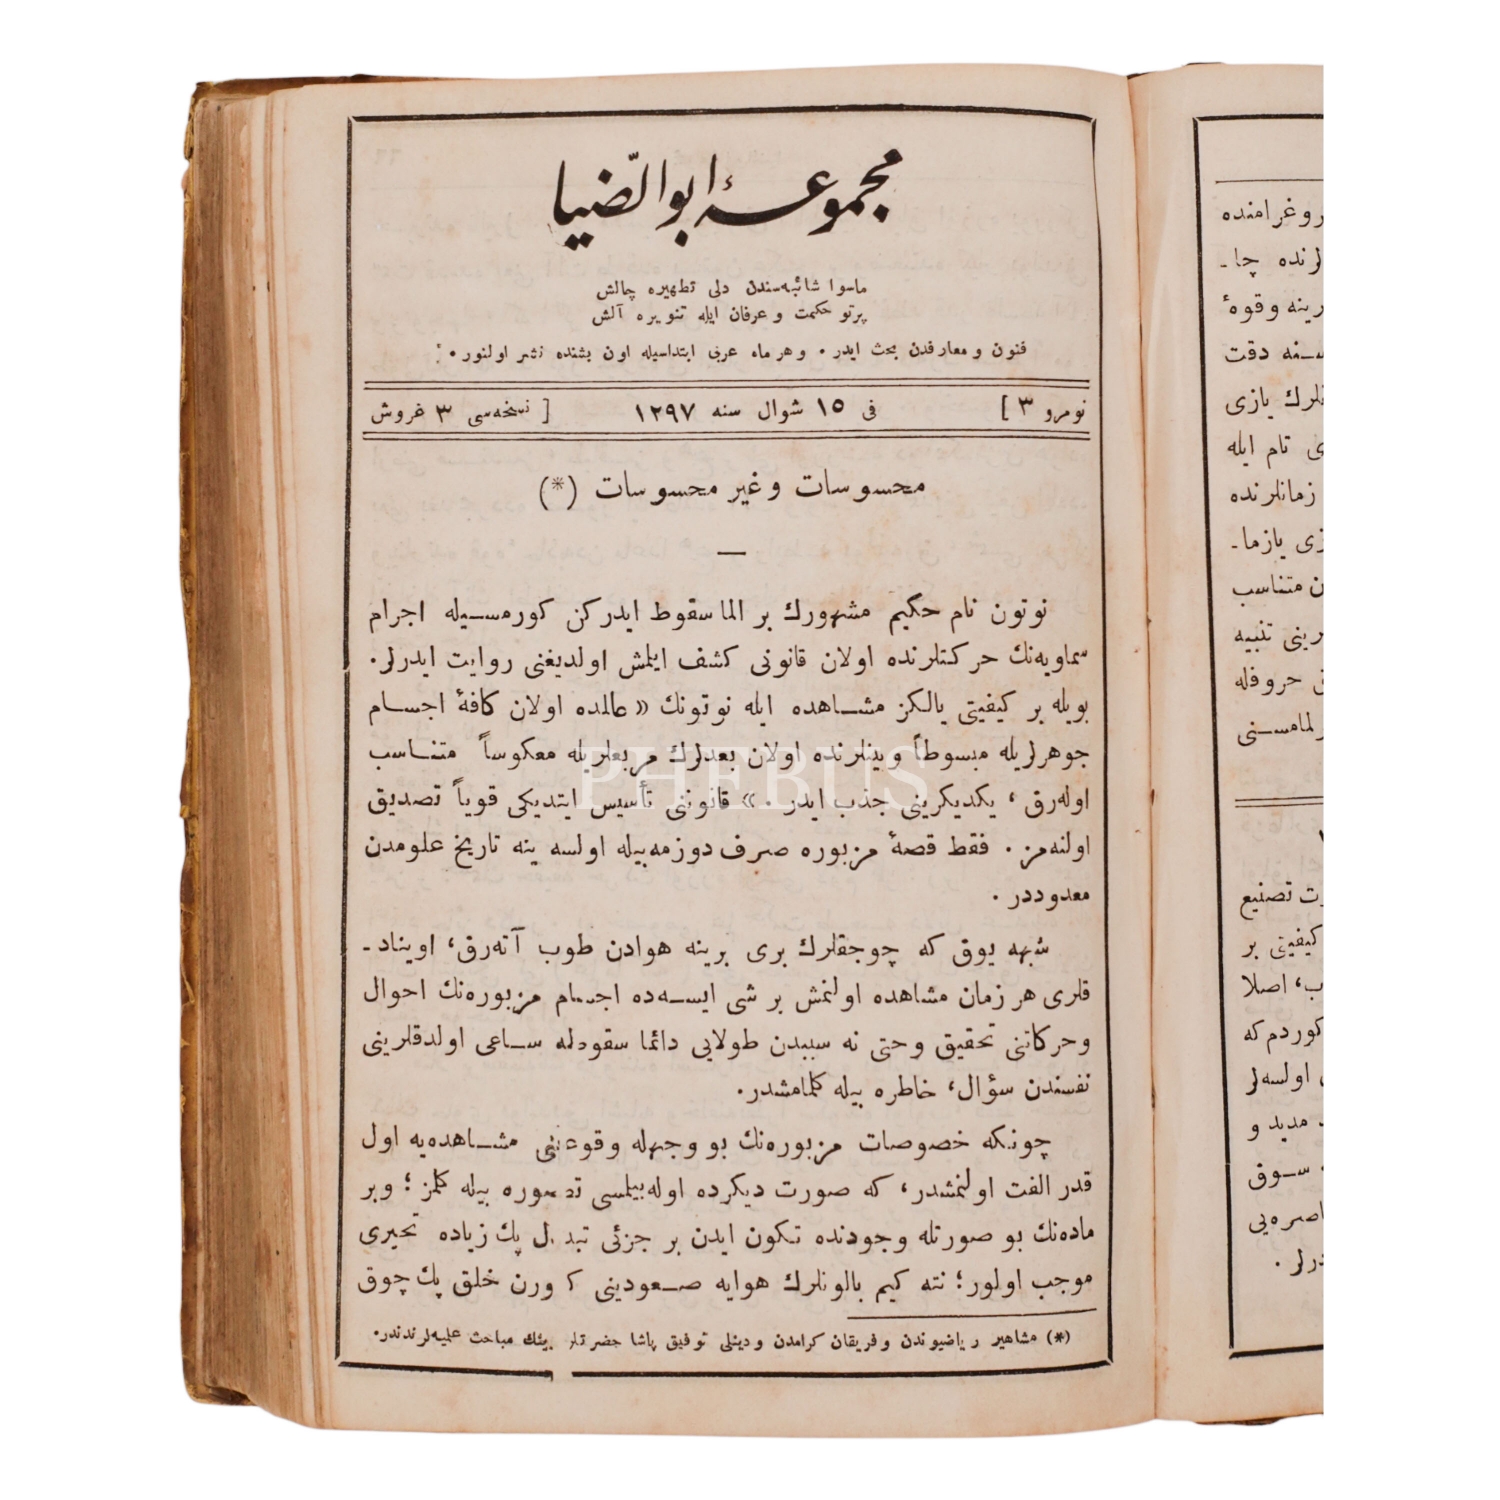 مجموعۀ ابوالضّيا
ماسوا شائبه‌سندن دلی تطهيره چالش
پرتو حكمت و عرفان ايله تنويره آلش
فنون و معارفدن بحث ايدر . وهر ماه عربی ابتداسيله اون بشنده نشر اولنور .
نومرو ٣ ] فی ١٥ شوال سنه ١٢٩٧ [ نسخه‌سی ٣ غروش
محسوسات وغير محسوسات (*)
نوتون نام حكيم مشهورك بر الما سقوط ايدركن كورمسيله اجرام
سماويه‌نك حركتلرنده اولان قانونی كشف ايلمش اولديغنی روايت ايدرلر.
بويله بر كيفيتی يالكز مشاهده ايله نوتونك « عالمده اولان كافۀ اجسام
جوهرلريله مبسوطاً وبينلرنده اولان بعدلرك مربعلريله معكوساً متناسب
اوله‌رق ، يكديكرينی جذب ايدر . » قانوننی تأسيس ايتديكی قوياً تصديق
اولنه‌مز . فقط قصۀ مزبوره صرف دوزمه‌بيله اولسه ينه تاريخ علومدن
معدوددر .
شبهه يوق كه چوجقلرك بری برينه هوادن طوب آته‌رق، اويناد-
قلری هر زمان مشاهده اولنمش بر شی ايسه‌ده اجسام مزبوره‌نك احوال
وحركاتنی تحقيق وحتی نه سببدن طولايی دائما سقوطه ساعی اولدقلرينی
نفسندن سؤال، خاطره بيله كلمامشدر.
چونكه خصوصات مزبوره‌نك بو وجهله وقوعنی مشاهده‌يه اول
قدر الفت اولنمشدر، كه صورت ديكرده اوله‌بيلمسی تصوره بيله كلمز ؛ وبر
ماده‌نك بو صورتله وجودنده تكون ايدن بر جزئی تبدل پك زياده تحيری
موجب اولور؛ نته كيم بالونلرك هوايه صعودينی كورن خلق پك چوق
(*) مشاهير رياضيوندن وفريقان كرامدن ودينلی توفيق پاشا حضرتلرينك مباحث علميه‌لرندندر.
روغرامنده
لرنده چا-
رينه وقوۀ
سنه دقت
لرك يازی
ی تام ايله
زمانلرنده
زی يازما-
ن متناسب
رينی تنبيه
حروفله
لمامسنی
ت تصنيع
كيفيتی بر
ب، اصلا
كوردم كه
اولسه‌لر
مديد و
سوق
اصره‌يی
درلر .